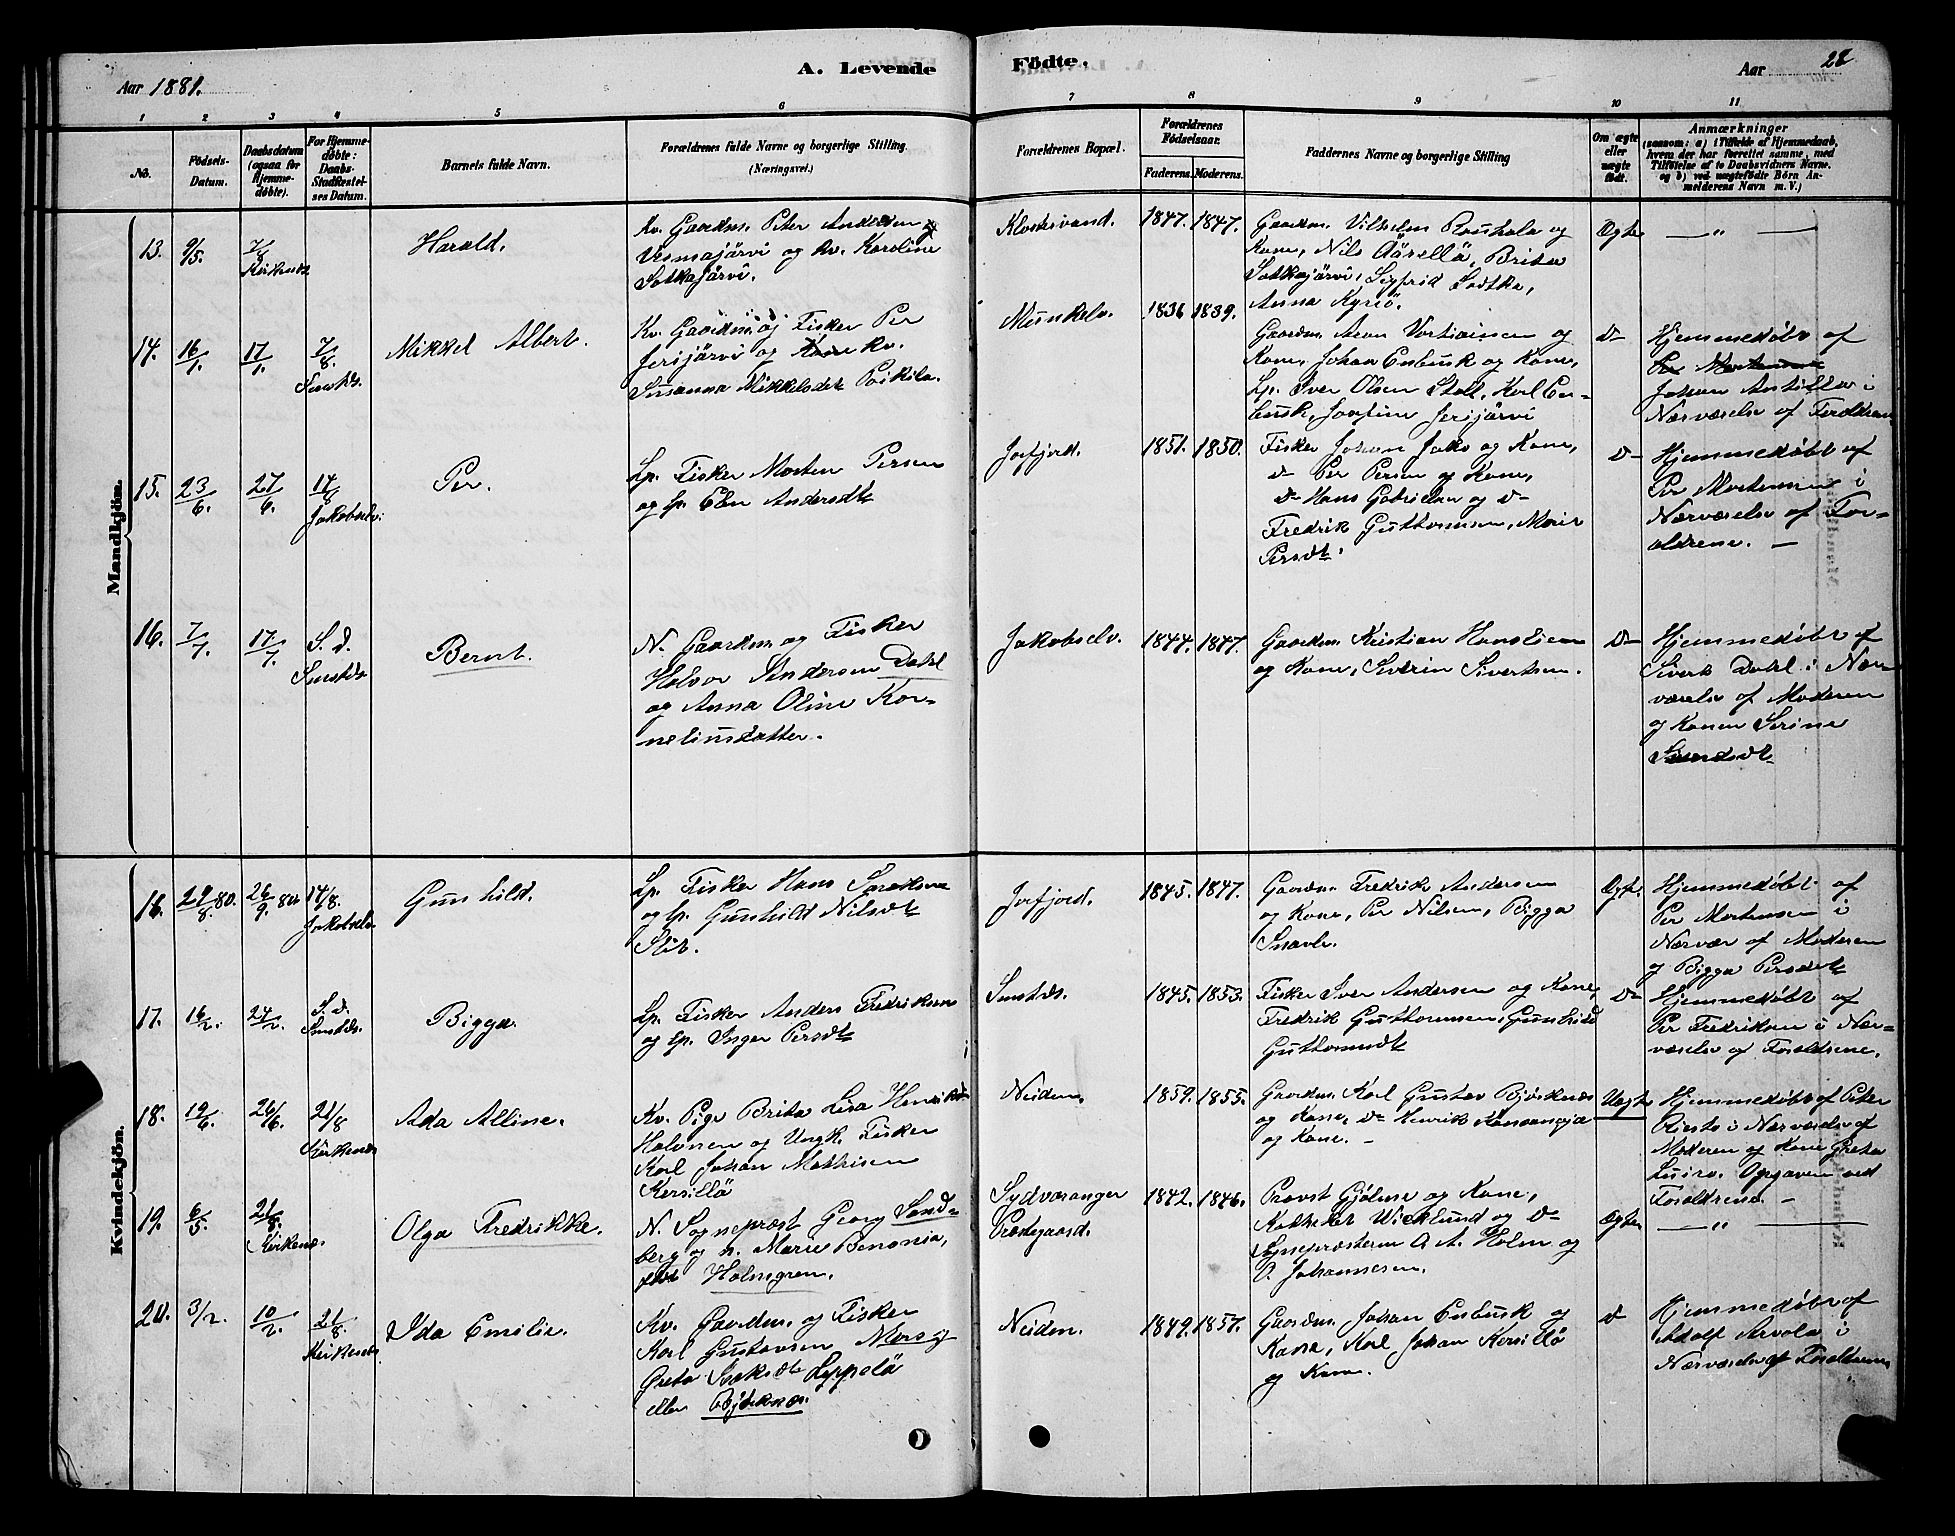 Aar 1881.
A. Levende
Födte.
Aar
28
1
2
3
4
5
6
7
8
9
10
11
No.
Födsels-
Datum.
Daabsdatum
(ogsaa for
Hjemme-
döbte).
For Hjemme-
döbte:
Daabs-
Stadfæstel-
ses Datum.
Barnets fulde Navn.
Forældrenes fulde Navne og borgerlige Stilling
(Næringsvei.)
Forældrenes Bopæl.
Forældrenes
Födselsaar.
Faderens.
Moderens.
Faddernes Navne og borgerlige Stilling
Om ægte
eller
uægte
födt.
Anmærkninger
(saasom: a) i Tilfælde af Hjemmedaab,
hvem der har forrettet samme, med
Tilföielse af to Daabsvidners Navne,
og b) ved uægtefödte Börn An-
melderens Navn m. V.)
Mandkjön.
13.
9/5.
7/8
Kirkenes
Harald.
Kv. Gaardm. Peter Andersen
Vesmajärvi og kv. Karoline
Sotkajärvi.
Klostervand.
1847.
1847.
Gaardm. Vilhelm Rouhala og
Kone, Nils Aärellä, Brita
Sotkajärvi, Sigfrid Sodtka,
Anna Kyrö.
Ægte
— " —
14.
16/1.
17/1.
7/8.
Mikkel Albert.
Kv. Gaardm. og Fisker Per
Jerijärvi og Kone kv.
Susanna Mikkelsdt Poikila.
Munkelv.
1836
1839.
Gaardm. Aron Vortiainen og
Kone, Johan Enbusk og Kone,
Lp. Iver Olsen Stall, Karl En-
busk, Josefine Jerijärvi
d-
Hjemmedöbt af
Per Mortensen
Johan Antilla i
Nærværelse af Foreldrene
15.
23/6.
27/6.
14/8
Jakobselv.
Per.
Lp. Fisker Morten Persen
og lp. Elen Andersdt
Jarfjord.
1851.
1850.
Fisker Johan Jaks og Kone,
d- Per Persen og Kone,
d- Hans Gabrielsen og d-
Fredrik Guttormsen, Marie
Persdt.
d-
Hjemmedöbt af
Per Mortensen i
Nærværelse af For-
ældrene. —
16.
7/7.
17/7.
S. d.
Bernt.
N. Gaardm og Fisker
Halvor Andersen Dahl
og Anna Oline Kor-
neliusdatter.
Jakobselv.
1844.
1847.
Gaardm. Kristian Hansliem
og Kone, Severin Sivertsen.
d-
Hjemmedöbt af
Sivert Dahl i Nær-
værelse af Moderen
og Konen Serine
Kvindekjön.
16.
80.
26/9. 80.
14/8.
Jakobselv
Gunhild.
Lp. Fisker Hans
og lp. Gunhild Nilsdt
Slit.
Jarfjord.
1845.
1847.
Gaardm. Fredrik Andersen
og Kone, Per Nilsen, Bigga
Ægte.
Hjemmedöbt af
Per Mortensen i
Nærvær af Moderen
og Bigga Persdt
17.
16/2.
27/2.
S. d.
Bigga.
Lp. Fisker Anders Fredriksen
og lp. Inger Persdt
1845.
1853.
Fisker Iver Andersen og Kone,
Fredrik Guttormsen, Gunhild
Guttormsdt
d-
Hjemmedöbt af
Per Fredriksen i Nær-
værelse af Forældrene.
18.
19/6.
26/6.
21/8
Kirkenes
Ada Alline.
Kv. Pige Brita Lisa Henriksd
Halonen og Ungk. Fisker
Karl Johan Mathisen
Kersillö
Neiden.
1859.
1855.
Gaardm. Karl Gustav Björknes
og Kone, d- Henrik
og Kone. —
Uægte
Hjemmedöbt af Peter
i Nærværelse af
Moderen og Kone Greta
Luiro. Opgaven ved
Forældrene. —
19.
6/5.
21/8.
Kirkenes.
Olga Fredrikke.
N. Sogneprest Georg Sand-
berg og n. Marie Benonia,
Holmgren.
Sydvaranger
Prestegaard.
1842.
1846.
Provst Gjölme og Kone,
Kateket Wicklund og d-
Sognepresterne A. A. Holm og
O. Johannesen.
Ægte
— " —
20.
3/2.
10/2.
21/8.
Kirkenes.
Ida Emilie.
Kv. Gaardm. og Fisker
Karl Gustavsen Mers og
Greta Isaksdt Leppelä
eller Björknes.
Neiden.
1849.
1857.
Gaardm. Johan Enbusk og
Kone, Karl Johan Kersillö
og Kone.
d
Hjemmedöbt af
Adolf Arvola i
Nærværelse af Forældrene